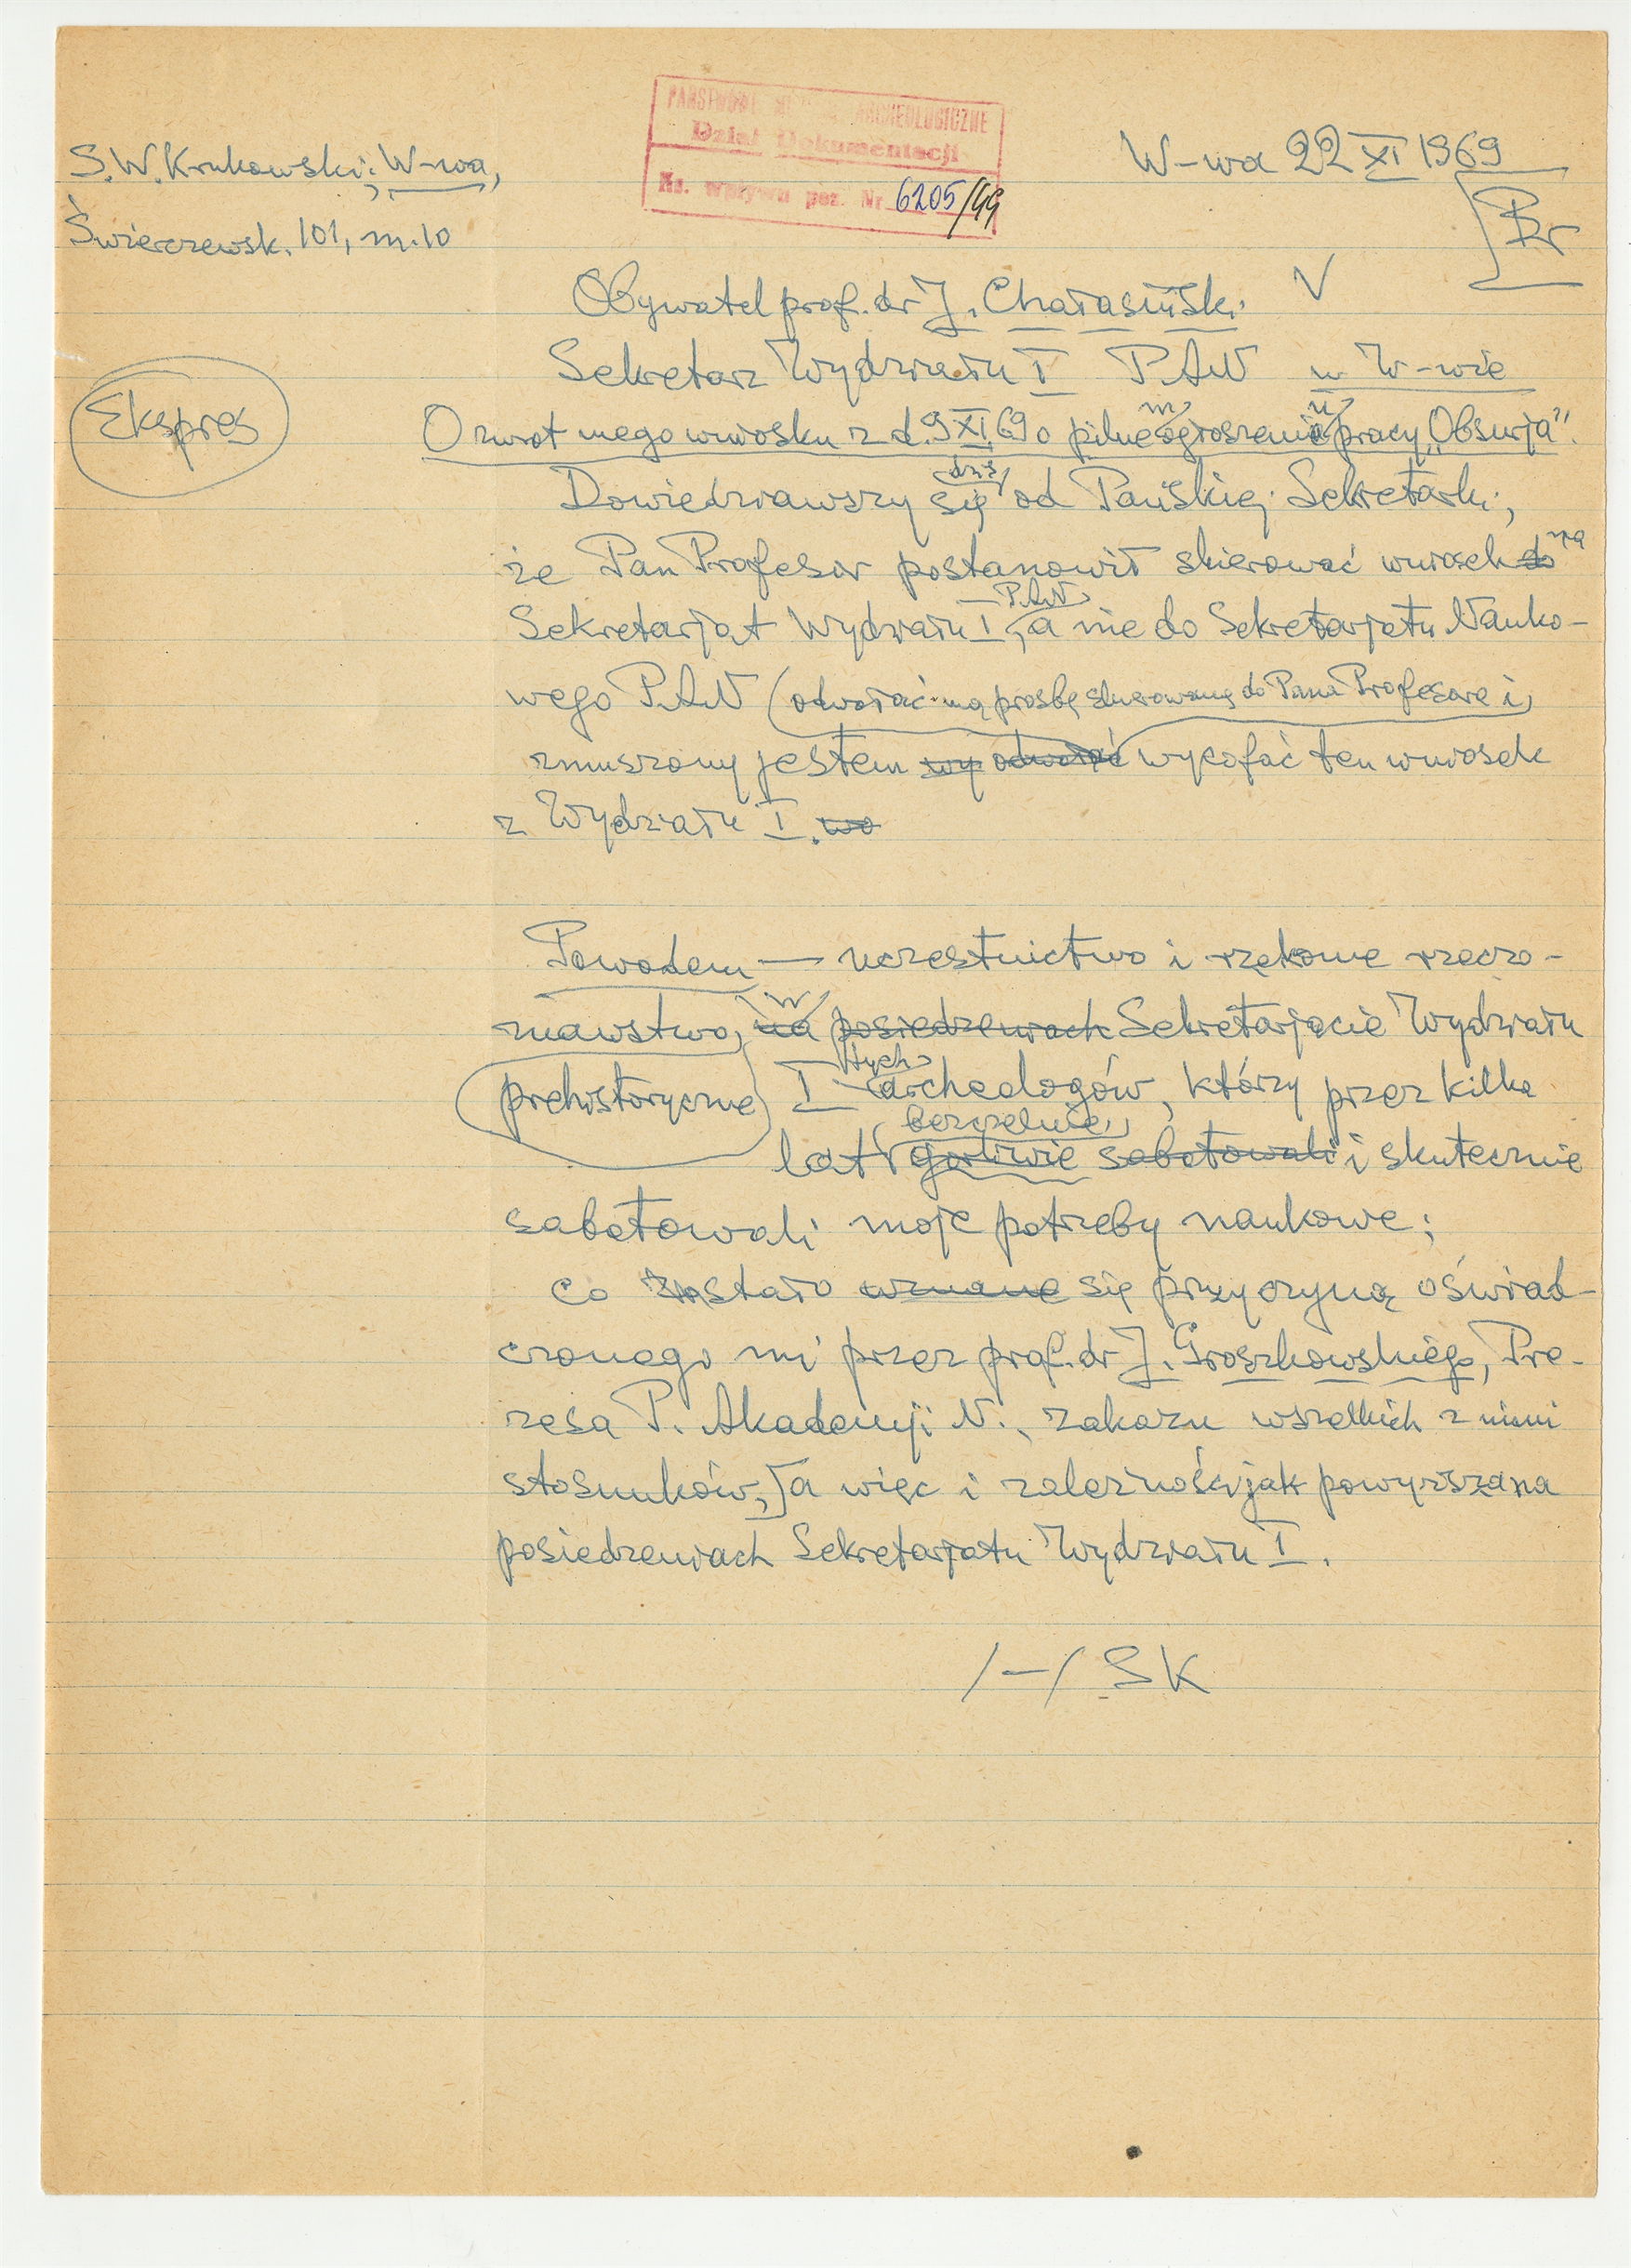 PAŃSTWOWE MUZEUM ARCHEOLOGICZNE
Dział Dokumentacji
Ks. wpływu poz. Nr 6205/99
S.W. Krukowski, W-wa,
Świerczewsk. 101, m. 10
W-wa 22 XI 1969
Br
V
Obywatel prof. dr J. Chałasiński
Sekretarz Wydziału I PAN w W-wie
Ekspres
O zwrot mego wniosku z d. 9 XI 69 o pilnem ogłoszeniu pracy „Obsurja".
Dowiedziawszy się dziś od Pańskiej Sekretarki,
że Pan Profesor postanowił skierować wniosek do na
Sekretarjat Wydziału I PAN, a nie do Sekretarjatu Nauko-
wego PAN (odwołać mą prośbę skierowaną do Pana Profesora i)
zmuszony jestem wy odwołać wycofać ten wniosek
z Wydziału I. wo
Powodem — uczestnictwo i rzekome rzeczo-
znawstwo, na w posiedzeniach Sekretarjacie Wydziału
prehistoryczne I tych archeologów, którzy przez kilka
lat bezczelnie gorliwie sabotowali i skutecznie
sabotowali moje potrzeby naukowe;
co stało się przyczyną oświad-
czonego mi przez prof. dr J. Groszkowskiego, Pre-
zesa P. Akademji N., zakazu wszelkich z nimi
stosunków, a więc i zależności jak powyższa na
posiedzeniach Sekretarjatu Wydziału I.
/-/ SK